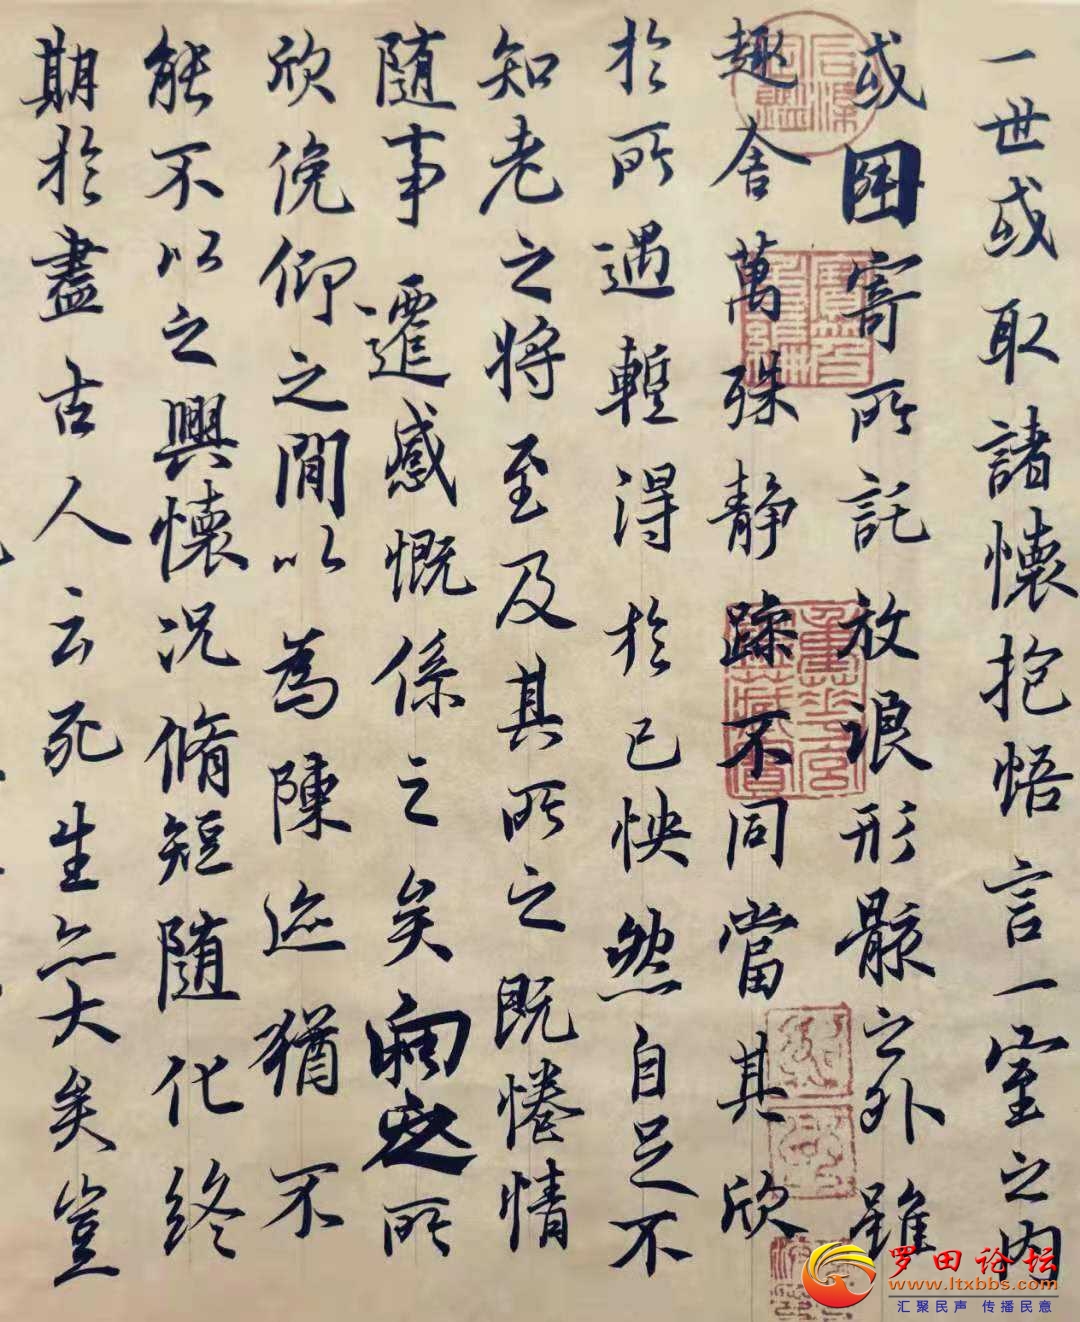 一世或取諸懷抱悟言一室之内
或因寄所託放浪形骸之外雖
趣舍萬殊静躁不同當其欣
於所遇蹔得於己怏然自足不
知老之將至及其所之既惓情
随事遷感慨係之矣向之所
欣俛仰之間以為陳迹猶不
能不以之興懷況脩短随化終
期於盡古人云死生亦大矣豈
罗田论坛
www.ltxbbs.com
汇聚民声 传播民意